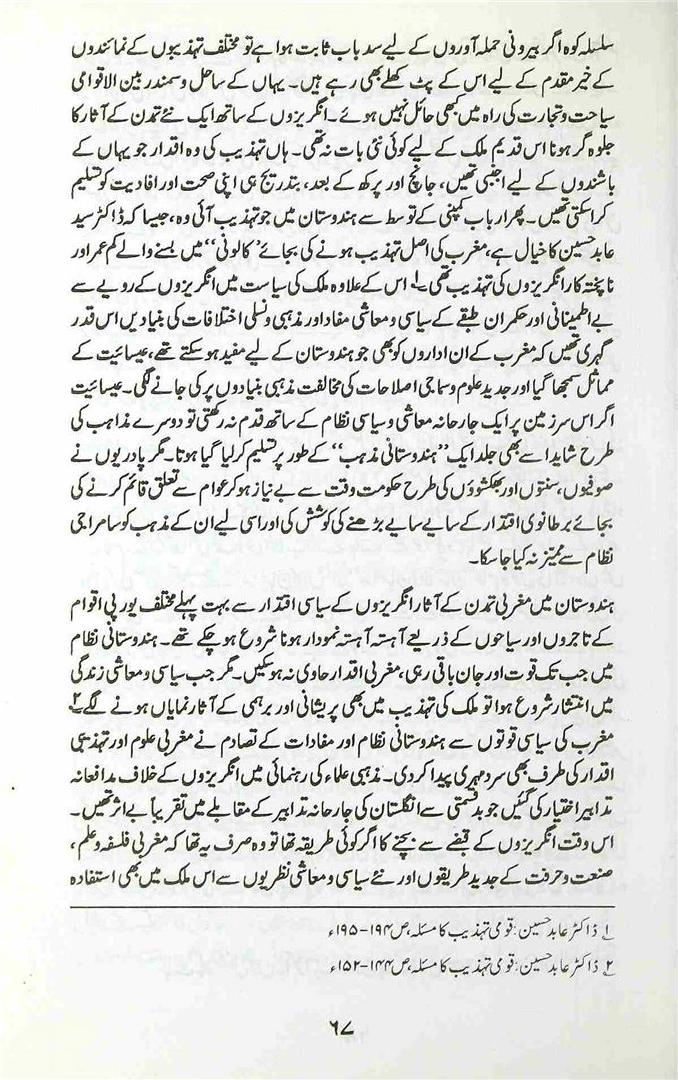 سلسلہ کوہ اگر بیرونی حملہ آوروں کے لیے سد باب ثابت ہوا ہے تو مختلف تہذیبوں کے نمائندوں
کے خیر مقدم کے لیے اس کے پٹ کھلے بھی رہے ہیں۔ یہاں کے ساحل و سمندر بین الاقوامی
سیاحت و تجارت کی راہ میں کبھی حائل نہیں ہوئے۔ انگریزوں کے ساتھ ایک نئے تمدن کے آثار کا
جلوہ گر ہونا اس قدیم ملک کے لیے کوئی نئی بات نہ تھی۔ ہاں تہذیب کی وہ اقدار جو یہاں کے
باشندوں کے لیے اجنبی تھیں، جانچ اور پرکھ کے بعد، بتدریج ہی اپنی صحت اور افادیت کو تسلیم
کرا سکتی تھیں۔ پھر ارباب کمپنی کے توسط سے ہندوستان میں جو تہذیب آئی وہ، جیسا کہ ڈاکٹر سید
عابد حسین کا خیال ہے، مغرب کی اصل تہذیب ہونے کی بجائے ’’کالونی‘‘ میں بسنے والے کم عمر اور
ناپختہ کار انگریزوں کی تہذیب تھی۔۱ اس کے علاوہ ملک کی سیاست میں انگریزوں کے رویے سے
بے اطمینانی اور حکمران طبقے کے سیاسی و معاشی مفاد اور مذہبی و نسلی اختلافات کی بنیادیں اس قدر
گہری تھیں کہ مغرب کے ان اداروں کو بھی جو ہندوستان کے لیے مفید ہو سکتے تھے، عیسائیت کے
مماثل سمجھا گیا اور جدید علوم و سماجی اصلاحات کی مخالفت مذہبی بنیادوں پر کی جانے لگی۔ عیسائیت
اگر اس سرزمین پر ایک جارحانہ معاشی و سیاسی نظام کے ساتھ قدم نہ رکھتی تو دوسرے مذاہب کی
طرح شاید اسے بھی جلد ایک ’’ہندوستانی مذہب‘‘ کے طور پر تسلیم کر لیا گیا ہوتا۔ مگر پادریوں نے
صوفیوں، سنتوں اور بھکشوؤں کی طرح حکومت وقت سے بے نیاز ہو کر عوام سے تعلق قائم کرنے کی
بجائے برطانوی اقتدار کے سایے سایے بڑھنے کی کوشش کی اور اسی لیے ان کے مذہب کو سامراجی
نظام سے ممیّز نہ کیا جا سکا۔
ہندوستان میں مغربی تمدن کے آثار انگریزوں کے سیاسی اقتدار سے بہت پہلے مختلف یورپی اقوام
کے تاجروں اور سیاحوں کے ذریعے آہستہ آہستہ نمودار ہونا شروع ہو چکے تھے۔ ہندوستانی نظام
میں جب تک قوت اور جان باقی رہی، مغربی اقدار حاوی نہ ہو سکیں۔ مگر جب سیاسی و معاشی زندگی
میں انتشار شروع ہوا تو ملک کی تہذیب میں بھی پریشانی اور برہمی کے آثار نمایاں ہونے لگے۔۲
مغرب کی سیاسی قوتوں سے ہندوستانی نظام اور مفادات کے تصادم نے مغربی علوم اور تہذیبی
اقدار کی طرف بھی سردمہری پیدا کر دی۔ مذہبی علماء کی رہنمائی میں انگریزوں کے خلاف مدافعانہ
تدابیر اختیار کی گئیں جو بدقسمتی سے انگلستان کی جارحانہ تدابیر کے مقابلے میں تقریباً بے اثر تھیں۔
اس وقت انگریزوں کے قبضے سے بچنے کا اگر کوئی طریقہ تھا تو وہ صرف یہ تھا کہ مغربی فلسفہ و علم،
صنعت و حرفت کے جدید طریقوں اور نئے سیاسی و معاشی نظریوں سے اس ملک میں بھی استفادہ
۱ ڈاکٹر عابد حسین: قومی تہذیب کا مسئلہ، ص ۱۹۴-۱۹۵ء
۲ ڈاکٹر عابد حسین: قومی تہذیب کا مسئلہ، ص ۱۴۴-۱۵۲ء
۶۷